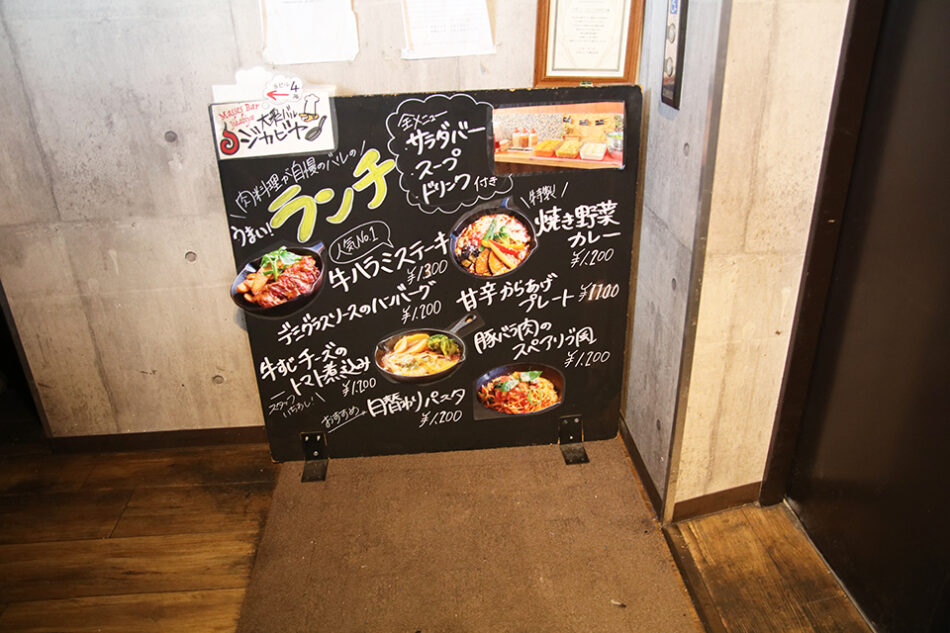 4
大衆バル
ジカビヤ
肉料理が自慢のバルの
うまい!
ランチ
全メニュー
サラダバー
スープ
ドリンク付き
人気No.1
牛ハラミステーキ
¥1300
特製!
焼き野菜
カレー
¥1.200
デミグラスソースのハンバーグ
¥1.200
甘辛からあげ
プレート ¥1100
牛すじチーズの
トマト煮込み
¥1.200
スタッフ
豚バラ肉の
スペアリブ風
¥1.200
おすすめ
日替わりパスタ
¥1.200